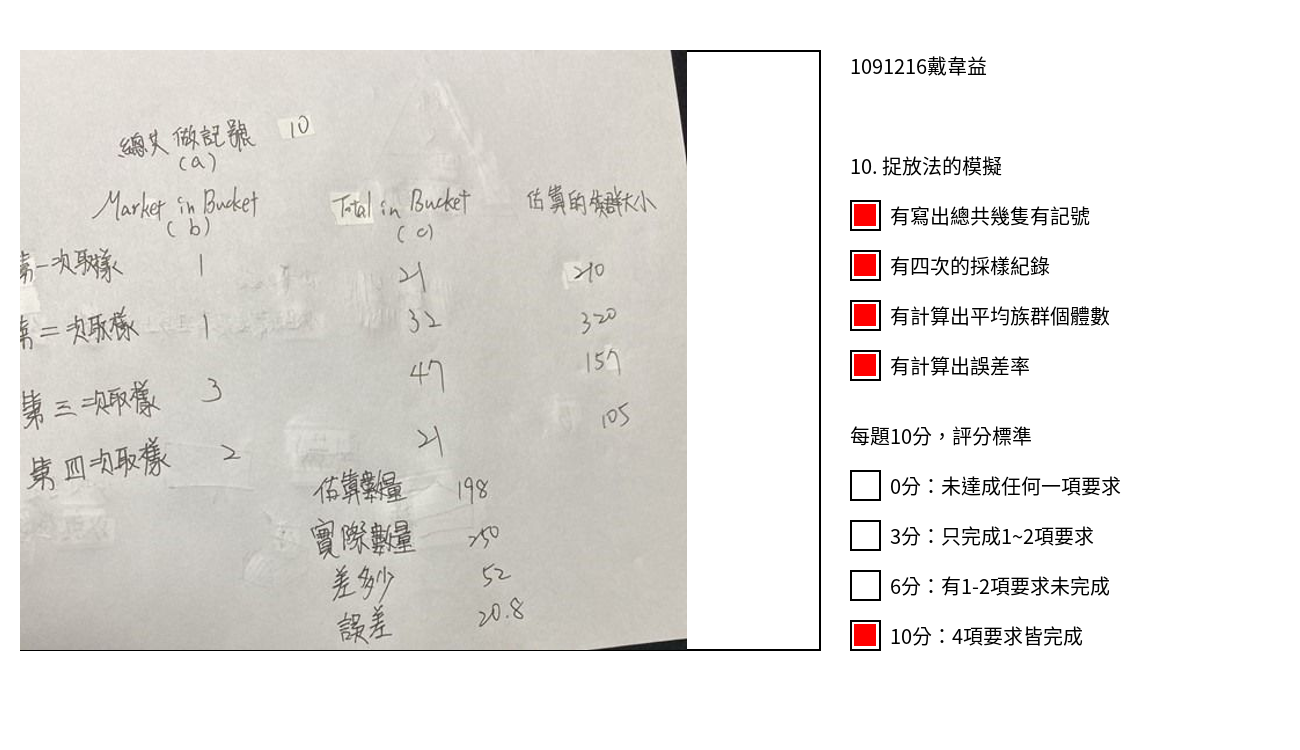 總共做記號 10
(a)
Market in Bucket Total in Bucket 估算的族群大小
(b) (c)
第一次取樣 1 21 210
第二次取樣 1 32 320
第三次取樣 3 47 157
第四次取樣 2 21 105
估算數量 198
實際數量 250
差多少 52
誤差 20.8
1091216戴韋益
10. 捉放法的模擬
有寫出總共幾隻有記號
有四次的採樣紀錄
有計算出平均族群個體數
有計算出誤差率
每題10分，評分標準
0分：未達成任何一項要求
3分：只完成1~2項要求
6分：有1-2項要求未完成
10分：4項要求皆完成